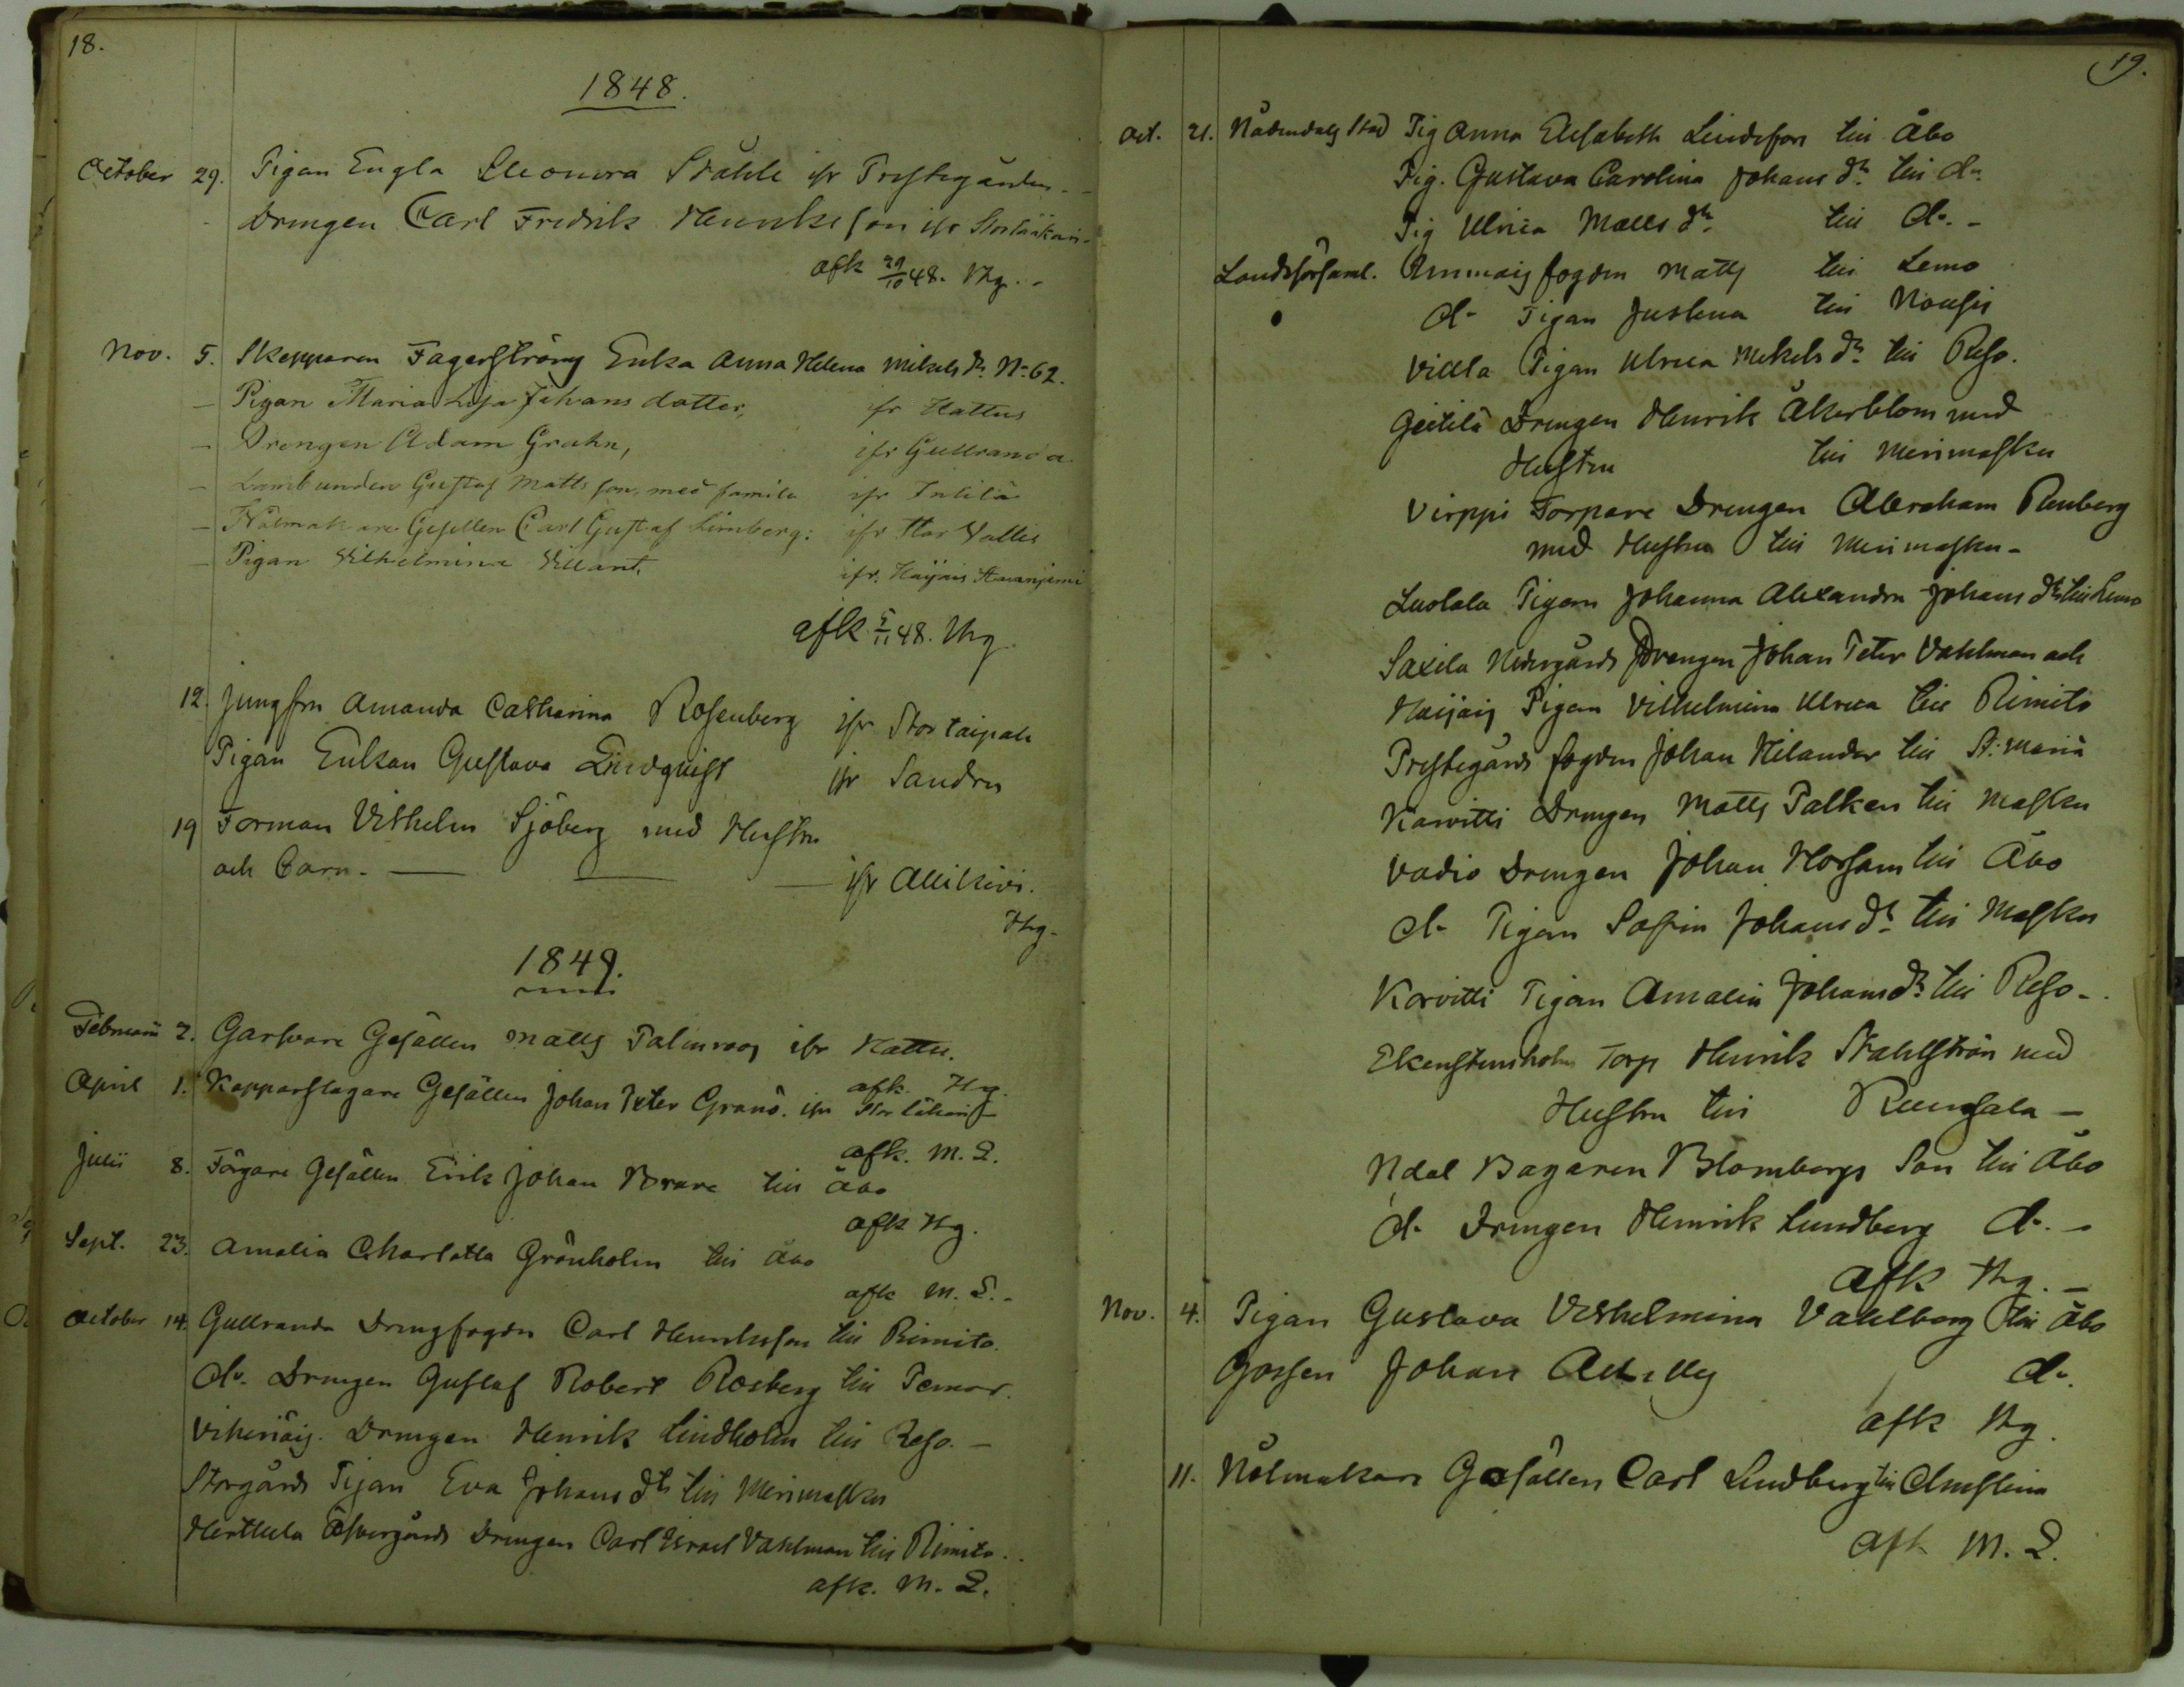 18.
1848.
October 29. Pigan Engla Eleonora Ståhle ifr Prestegården
Drengen Carl Fredrik Henriksson ifr
afk 29/10 48. Thg.
Nov. 5. Skepparen Fagerströms Enka Anna Helena Mikels dr. No 62.
– Pigan Maria Lisa Johans dotter, ifr Hattus
– Drengen Adam Grahn, ifr Gullranda
– Gustaf Mattsson, med familie ifr
– Nålmakare Gesellen Carl Gustaf Limberg: ifr
– Pigan Vilhelmina ifr. Haijais
afk 5/11 48. Thg
12. Jungfru Amanda Catharina Rosenberg ifr Stor taipale
Pigan Enkan Gustava Lindqvist ifr Sandru
19 Forman Vilhelm Sjöberg med Hustru
och Barn. — — — ifr
Thg.
1849.
Februarii 2. Garfvare Gesällen Matts Palmroos ifr Hattu.
afk. Thg.
April 1. Kopparslagare Gesällen Johan Peter Granö. ifr
afk. M. L.
Julii 8. Färgare Gesällen Erik Johan Brare till Åbo
afk Thg.
Sept. 23. Amalia Charlotta Grönholm till Åbo
afk M. L.
October 14. Gullranda Drengfogden Carl Henriksson till Rimito.
do. Drengen Gustaf Robert Rosberg till Pemar.
Drengen Henrik Lindholm till Reso. –
Storgårds Pigan Eva Johans dtr till Merimasku
Herttula Öfvergårds Drengen Carl Israel Vahlman till Rimito.
afk. M. L.
19.
Oct. 21. Nådendals Stad Pig Anna Elisabeth Lindefors till Åbo
Pig. Gustava Carolina Johans dr till do
Pig Ulrica Matts dr till do. –
Landsförsaml. Ammais fogden Matts till Lemo
do Pigan Justina till Nousis
Viilla Pigan Ulrica Mickels dr till Reso.
Drengen Henrik Åkerblom med
Hustru till Merimasku
Virppi Torpare Drengen Abraham Renberg
med Hustru till Merimasku –
Luolala Pigan Johanna Alexandra Johans dr till Lemo
Saxila Nedergårds Drengen Johan Peter Vahlman och
Haijais Pigan Vilhelmina Ulrica till Rimito
Prestegårds fogden Johan Hilander till St: Maria
Karvitti Drengen Matts Palken till Masku
Vadio Drengen Johan till Åbo
do Pigan Sofia Johans dr till Masku
Karvitti Pigan Amalia Johans dr till Reso –
Torp Henrik Stahlström med
Hustru till Rumsala –
Ndal Bagaren Blombergs Son till Åbo
do Drengen Henrik Lundberg do. –
afk Thg. –
Nov. 4. Pigan Gustava Vilhelmina Vahlberg till Åbo
Gossen Johan do.
afk Thg.
11. Nålmakare Gesällen Carl Lindberg till Christina
afk M. L.